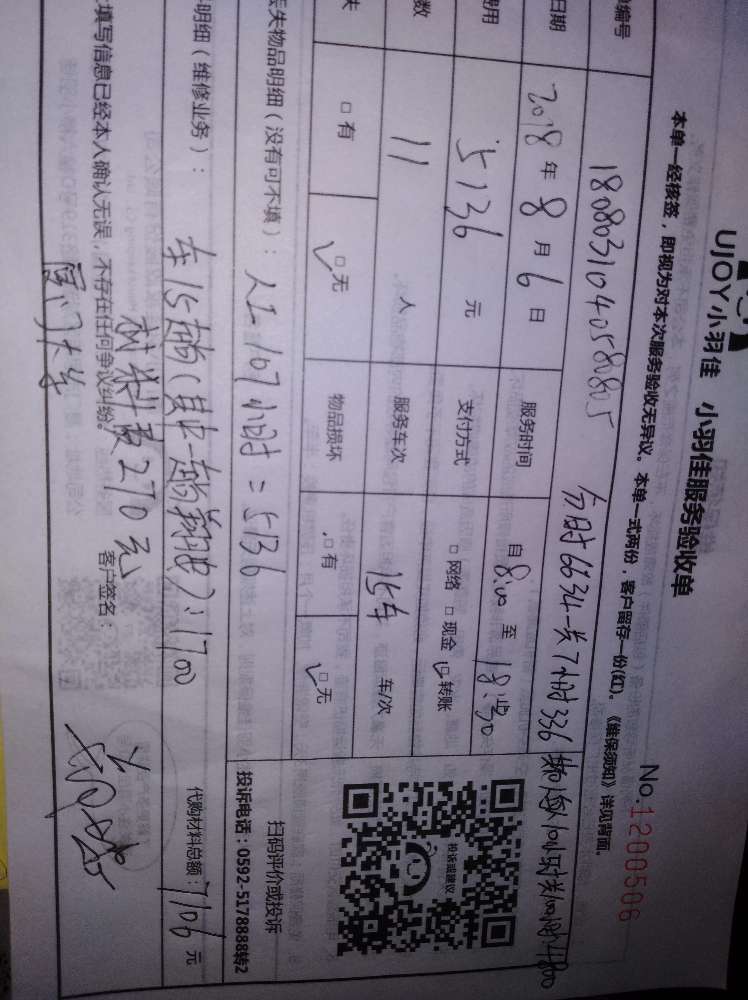 UJOY小羽佳 小羽佳服务验收单
本单一经核签，即视为对本次服务验收无异议。本单一式两份，客户留存一份(红)。《维保须知》详见背面。
No.1200506
编号 1808031040580805
日期 2018 年 8 月 6 日 服务时间 自 8:00 至 18:30
费用 5136 元 支付方式 □ 网络 □ 现金 ☑ 转账
数 11 人 服务车次 15车 车/次
失 □ 有 ☑ 无 物品损坏 □ 有 ☑ 无
丢失物品明细（没有可不填）： 人工 107小时 = 5136
扫码评价或投诉
投诉电话：0592-5178888转2
投诉或建议
明细（维修业务）： 车15趟(其中一趟翔安)：1700
材料费270元
代购材料总额：7106 元
填写信息已经本人确认无误，不存在任何争议纠纷。
客户签名：
厦门大学